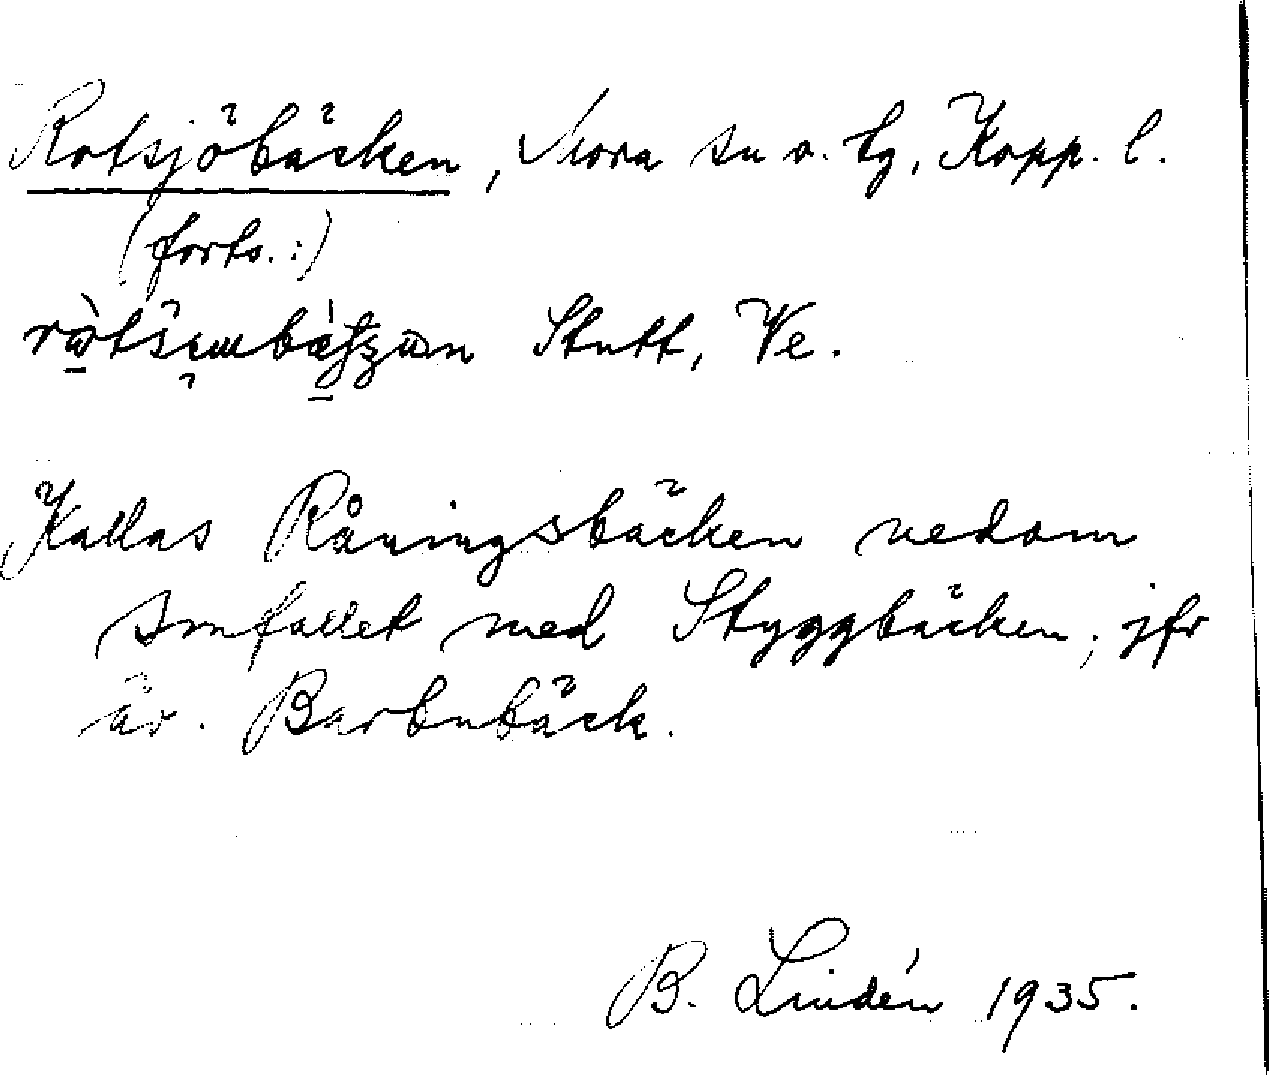 Rotsjöbäcken, Mora sn o. tg, Kopp. l.
(forts.:)
Stutt, Ve.
Kallas Råningsbäcken nedom
smfallet med Styggbäcken; jfr
äv. Barbubäck.
B. Lindén 1935.